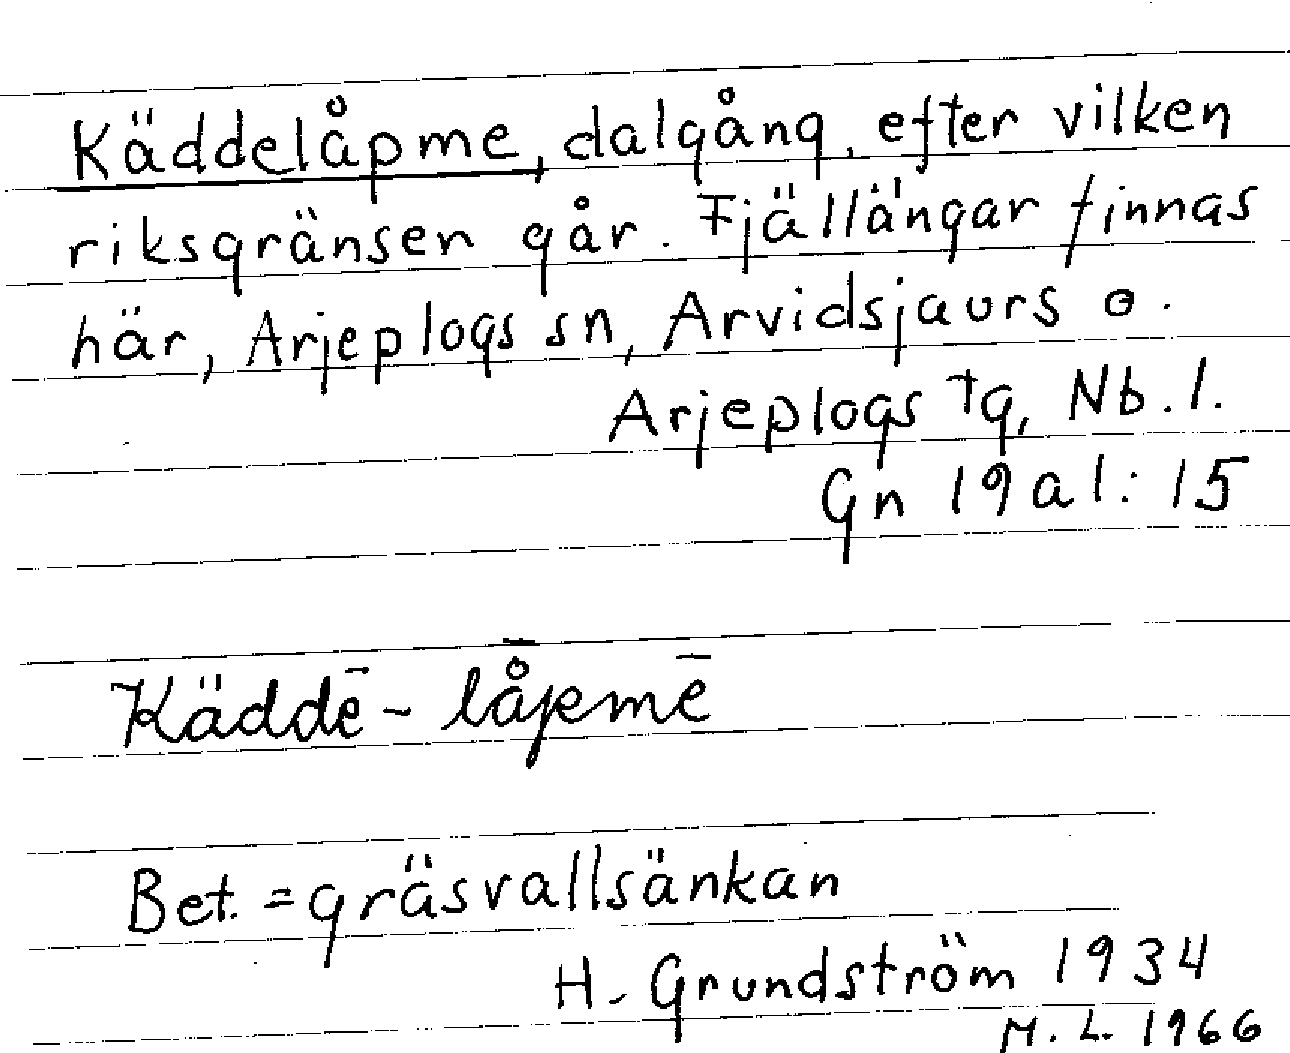 Käddelåpme, dalgång, efter vilken
riksgränsen går. Fjällängar finnas
här, Arjeplogs sn, Arvidsjaurs o.
Arjeplogs tg, Nb. l.
Gn 19 a l : 15
Käddē - lå̄pmē
Bet. = gräsvallsänkan
H. Grundström 1934
M. L. 1966